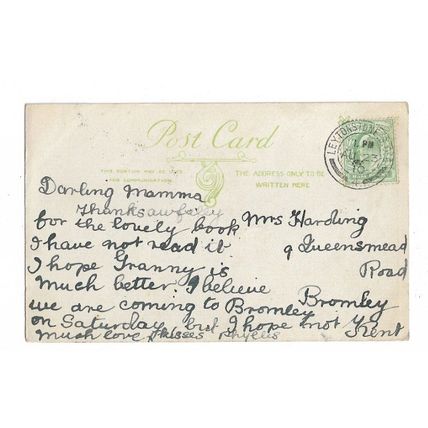 Post Card
THIS PORTION MAY BE USED
FOR COMMUNICATION
THE ADDRESS ONLY TO BE
WRITTEN HERE
LEYTONSTONE
PM
23
Darling Mamma
Thanks awfully
for the lovely book
I have not read it
I hope Granny is
much better I believe
we are coming to Bromley
on Saturday but I hope not
much love & kisses Phyllis
Mrs Harding
9 Queensmead
Road
Bromley
Kent